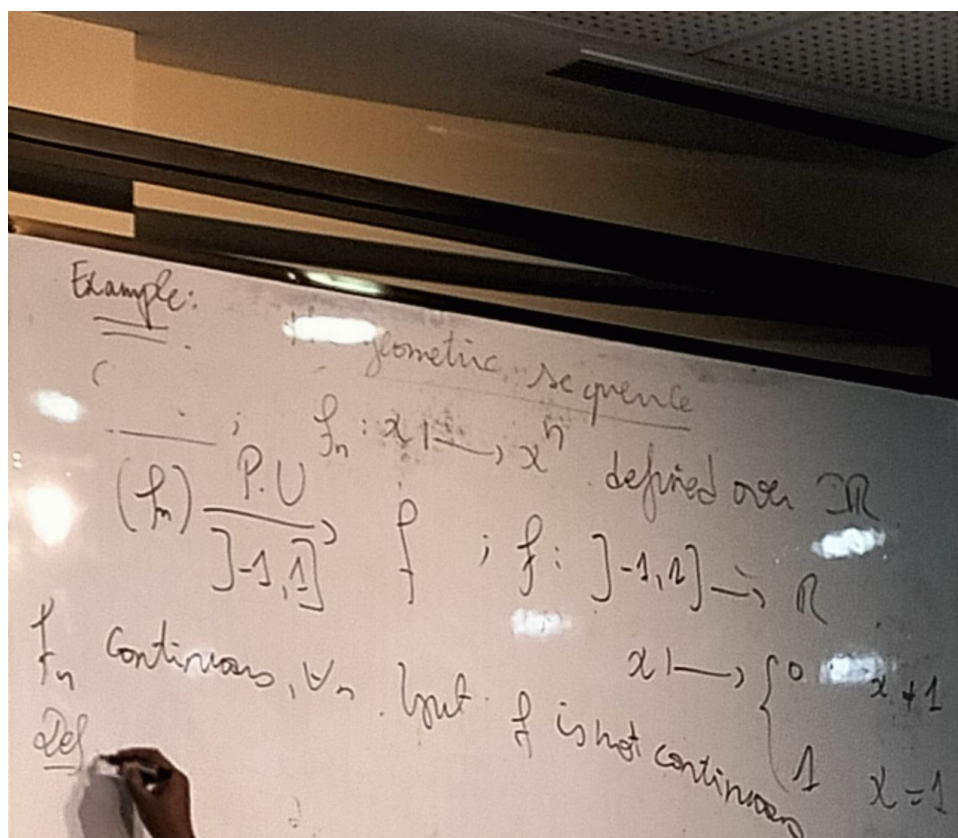 Example:
geometric sequence
fₙ : x ↦ xⁿ defined over ℝ
(fₙ) P.U → ]-1,1] f ; f : ]-1,1] → ℝ
x ↦ { 0 x ≠ 1
1 x = 1
fₙ continuous, ∀n but f is not continuous
Def